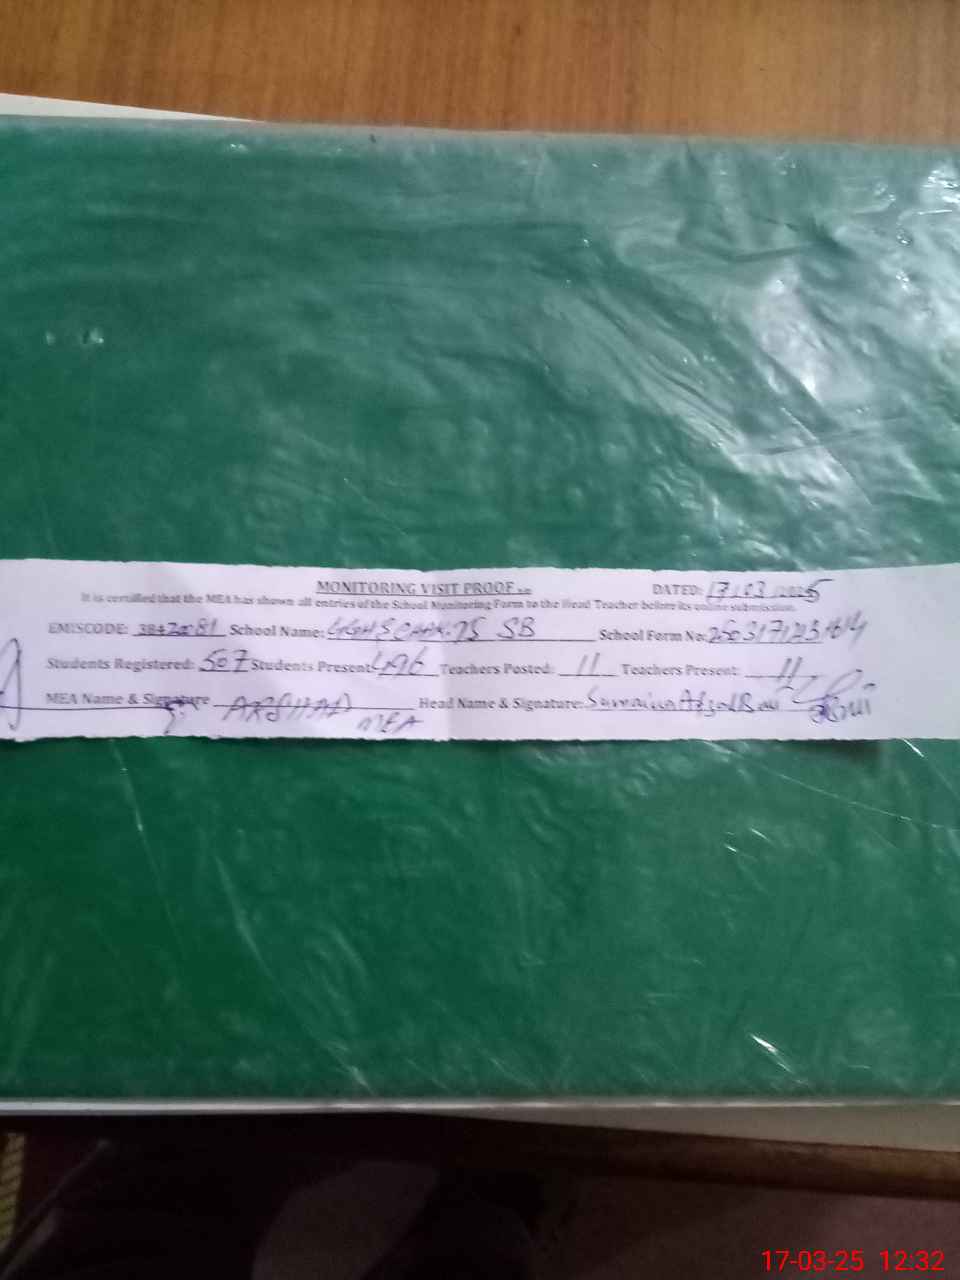 MONITORING VISIT PROOF
DATED: 17.03.2025
It is certified that the MEA has shown all entries of the School Monitoring Form to the Head Teacher before its online submission.
EMISCODE: School Name: SB School Form No:
Students Registered: 507 Students Present: 496 Teachers Posted: 11 Teachers Present: 11
MEA Name & Signature ARSHAD Head Name & Signature:
MEA
17-03-25 12:32